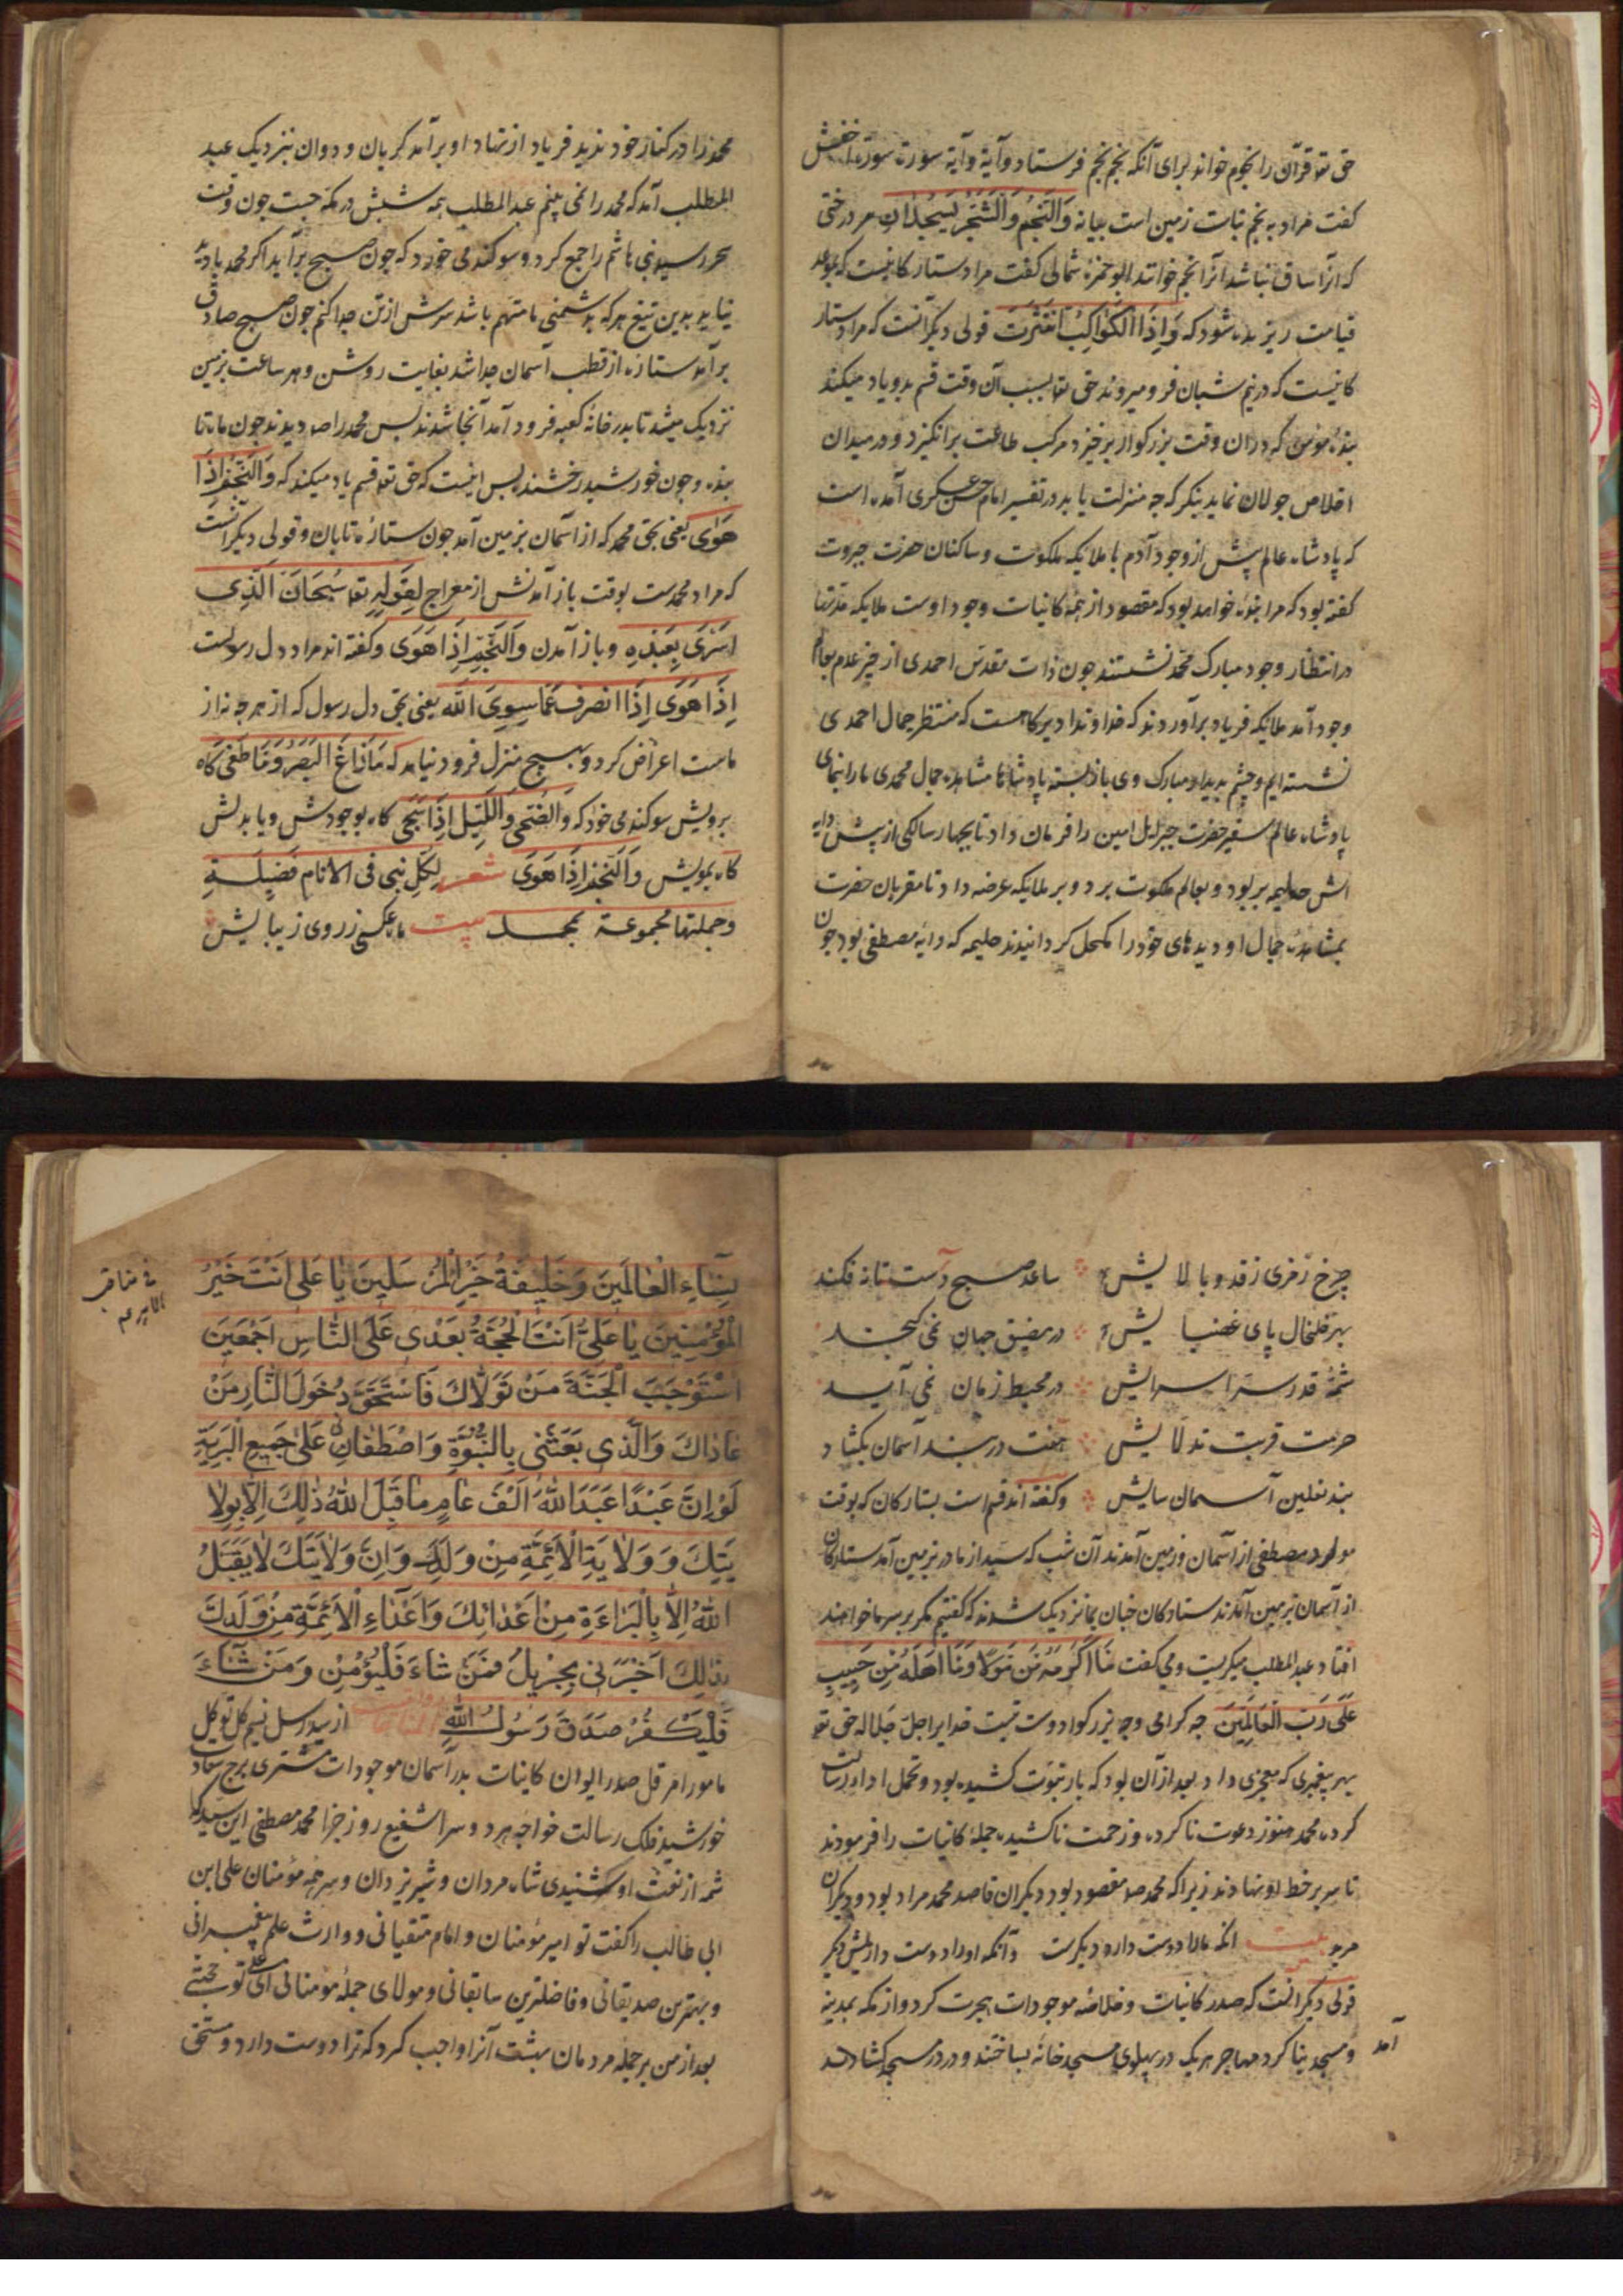 حق تعه قرآن را نجوم خواند برای آنکه نجم نجم فرستاد و آیة و آیة سورت سورة اخفش
کفت مراد به نجم نبات زمین است بیانه وَالنَّجْمُ وَالشَّجَرُ يَسْجُدَانِ هر درختی
که آنرا ساق نباشد آنرا نجم خوانند ابو حمزه ثمالی کفت مراد ستارکانیست که بموعد
قیامت ریزیده شود که وَإِذَا الْكَوَاكِبُ انْتَثَرَتْ قولی دیگر آنست که مراد ستار
کانیست که در نیم شبان فرو میروند حق تعه بسبب آن وقت قسم بدو یاد میکند
بندهٔ مؤمن که در ان وقت بزرکوار برخیزد مرکب طاعت برانکیزد و در میدان
اخلاص جولان نماید بنکر که چه منزلت یابد در تفسیر امام حسن عسکری آمده است
که پادشاه عالم پیش از وجود آدم با ملایکه ملکوت و ساکنان حضرت جبروت
کفته بود که مرا بندهٔ خواهد بود که مقصود از همه کاینات وجود اوست ملایکه مدتها
در انتظار وجود مبارک محمد نشستند چون ذات مقدس احمدی از حیز عدم بعالم
وجود آمد ملایکه فریاد برآوردند که خداوندا دیرکاهست که منتظر جمال احمدی
نشسته ایم و چشم بدیدار مبارک وی باز بسته پادشاها مشاهده جمال محمدی ما را بنمای
پادشاه عالم سفیر حضرت جبرئیل امین را فرمان داد تا بچهار سالکی از پیش دایه
اش حلیمه بربود و بعالم ملکوت برد و بر ملایکه عرضه داد تا مقربان حضرت
بمشاهدهٔ جمال او دیدهای خود را مکحل کردانیدند حلیمه که دایهٔ مصطفی بود چون
محمد را در کنار خود ندید فریاد از نهاد او برآمد کریان و دوان بنزدیک عبد
المطلب آمد که محمد را نمی بینم عبد المطلب همه شبش در مکه جست چون وقت
سحر رسید بنی هاشم را جمع کرد و سوکند می خورد که چون صبح برآید اکر محمد بادید
نیاید بدین تیغ هر که بدشمنی ما متهم باشد سرش از تن جدا کنم چون صبح صادق
برآمد ستاره از قطب آسمان جدا شد بغایت روشن و هر ساعت بزمین
نزدیک میشد تا بدر خانهٔ کعبه فرود آمد آنجا شدند پس محمد را صه دیدند چون ماه تا
بنده و چون خورشید رخشنده پس اینست که حق تعه قسم یاد میکند که وَالنَّجْمِ إِذَا
هَوَى یعنی بحق محمد که از آسمان بزمین آمد چون ستارهٔ تابان و قولی دیگر آنست
که مراد محمدست بوقت باز آمدنش از معراج لقوله تعه سُبْحَانَ الَّذِي
أَسْرَى بِعَبْدِهِ و باز آمدن وَالنَّجْمِ إِذَا هَوَى و کفته اند مراد دل رسولست
إِذَا هَوَى إِذَا انصرف عَمَّا سِوَى الله یعنی بحق دل رسول که از هر چه نه از
ماست اعراض کرد و بهیچ منزل فرود نیامد که مَا زَاغَ الْبَصَرُ وَمَا طَغَى کاه
برویش سوکند می خورد که وَالضُّحَى وَاللَّيْلِ إِذَا سَجَى کاه بوجودش و یا بدلش
کاه بمویش وَالنَّجْمِ إِذَا هَوَى شعر لِكُلِّ نبی فی الانام فَضِيلَةٍ
وجملتها مجموعة بمحمد بیت ماه عکسی ز روی زیبایش
چرخ زفری ز قد و بالایش ساعد صبح دست تا نه فکند
بهر خلخال پای غضبایش در مضیق جهان نمی کنجد
شمهٔ قدر سر اسرایش در محیط زمان نمی آید
حرمت قربت تدلایش هفت در بند آسمان بکشاد
بند نعلین آسمان سایش و کفته اند قسم است بستارکان که بوقت
مولود مصطفی از آسمان و زمین آمدند آن شب که سید از مادر بزمین آمد ستارکان
از آسمان بزمین آمدند ستارکان چنان بما نزدیک شدند که کفتیم مکر بر سر ما خواهند
افتاد عبد المطلب میکریست و می کفت مَا أَكْرَمَهُ مِنْ مَوْلًا وَمَا أَهَلَّهُ مِنْ حَبِيبٍ
عَلَى رَبِّ الْعَالَمِينَ چه کرامی و چه بزرکوار دوست تیست خدایرا جل جلاله حق تعه
بهر پیغمبری که معجزی داد بعد از آن بود که بار نبوت کشیده بود و تحمل اداء رسالت
کرده محمد هنوز دعوت ناکرده و زحمت ناکشیده جملهٔ کاینات را فرمودند
تا سر بر خط او نهادند زیرا که محمد صه مقصود بود دیگران قاصد محمد مراد بود و دیگران
مرید بیت آنکه ما را دوست دارد دیکرست و آنکه او را دوست داریمش دیکر
قولی دیگر آنست که صدر کاینات و خلاصهٔ موجودات هجرت کرد و از مکه بمدینه
آمد
و مسجد بنا کرد مهاجر هر یک در پهلوی مسجد خانهٔ بساختند و در در مسجد کشادند
فی مناقب
الامیر عم
بِسَاءِ الْعَالَمِينَ وَخَلِيفَةُ خَيْرِ الْمُرْسَلِينَ يَا عَلِي أَنْتَ خَيْرُ
الْمُؤْمِنِينَ يَا عَلِيُّ أَنْتَ الْحُجَّةُ بَعْدِي عَلَى النَّاسِ أَجْمَعِينَ
اسْتَوْجَبَ الْجَنَّةَ مَنْ تَوَلَّاكَ فَاسْتَحَقَّ دُخُولَ النَّارِ مَنْ
عَادَاكَ وَالَّذِي بَعَثَنِي بِالنُّبُوَّةِ وَاصْطَفَانِي عَلَى جَمِيعِ الْبَرِيَّةِ
لَوْ أَنَّ عَبْدًا عَبَدَ اللَّهَ أَلْفَ عَامٍ مَا قَبِلَ اللَّهُ ذَلِكَ إِلَّا بِوِلَا
يَتِكَ وَوِلَايَةِ الْأَئِمَّةِ مِنْ وَلَدِكَ وَإِنَّ وَلَايَتَكَ لَا يَقْبَلُ
اللَّهُ إِلَّا بِالْبَرَاءَةِ مِنْ أَعْدَائِكَ وَأَعْدَاءِ الْأَئِمَّةِ مِنْ وُلْدِكَ
بِذَلِكَ أَخْبَرَنِي جِبْرِيلُ فَمَنْ شَاءَ فَلْيُؤْمِنْ وَمَنْ شَاءَ
فَلْيَكْفُرْ صَدَقَ رَسُولُ اللَّهِ از سید رسل نسیم کل توکل
مامور امر قل صدر ایوان کاینات بدر آسمان موجودات مشتری برج سعادت
خورشید فلک رسالت خواجه هر دو سرا شفیع روز جزا محمد مصطفی این سید که
شمه از نعت او شنیدی شاه مردان و شیر یزدان و سرجمه مؤمنان علی ابن
ابی طالب را کفت تو امیر مؤمنان و امام متقیانی و وارث علم پیغمبرانی
و بهترین صدیقانی و فاضلترین سابقانی و مولای جملهٔ مؤمنانی ای علی تو حجتی
بعد از من بر جمله مردمان بهشت آنرا واجب کردد که ترا دوست دارد و مستحق